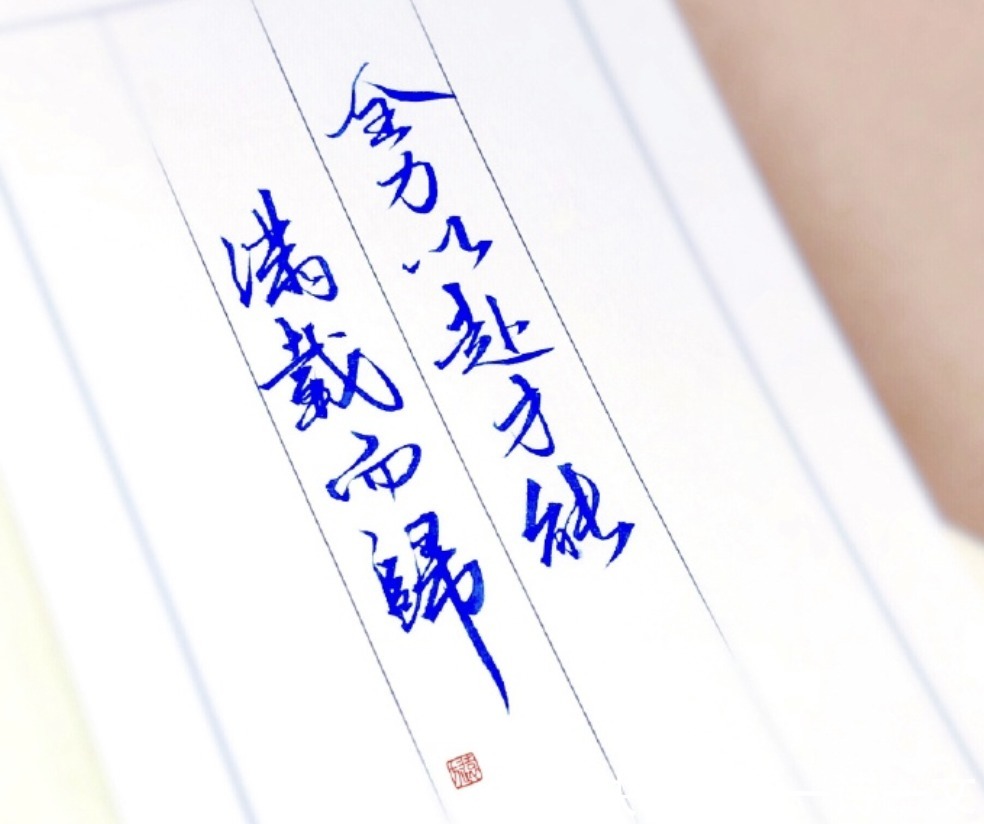 全力以赴才能
满载而歸